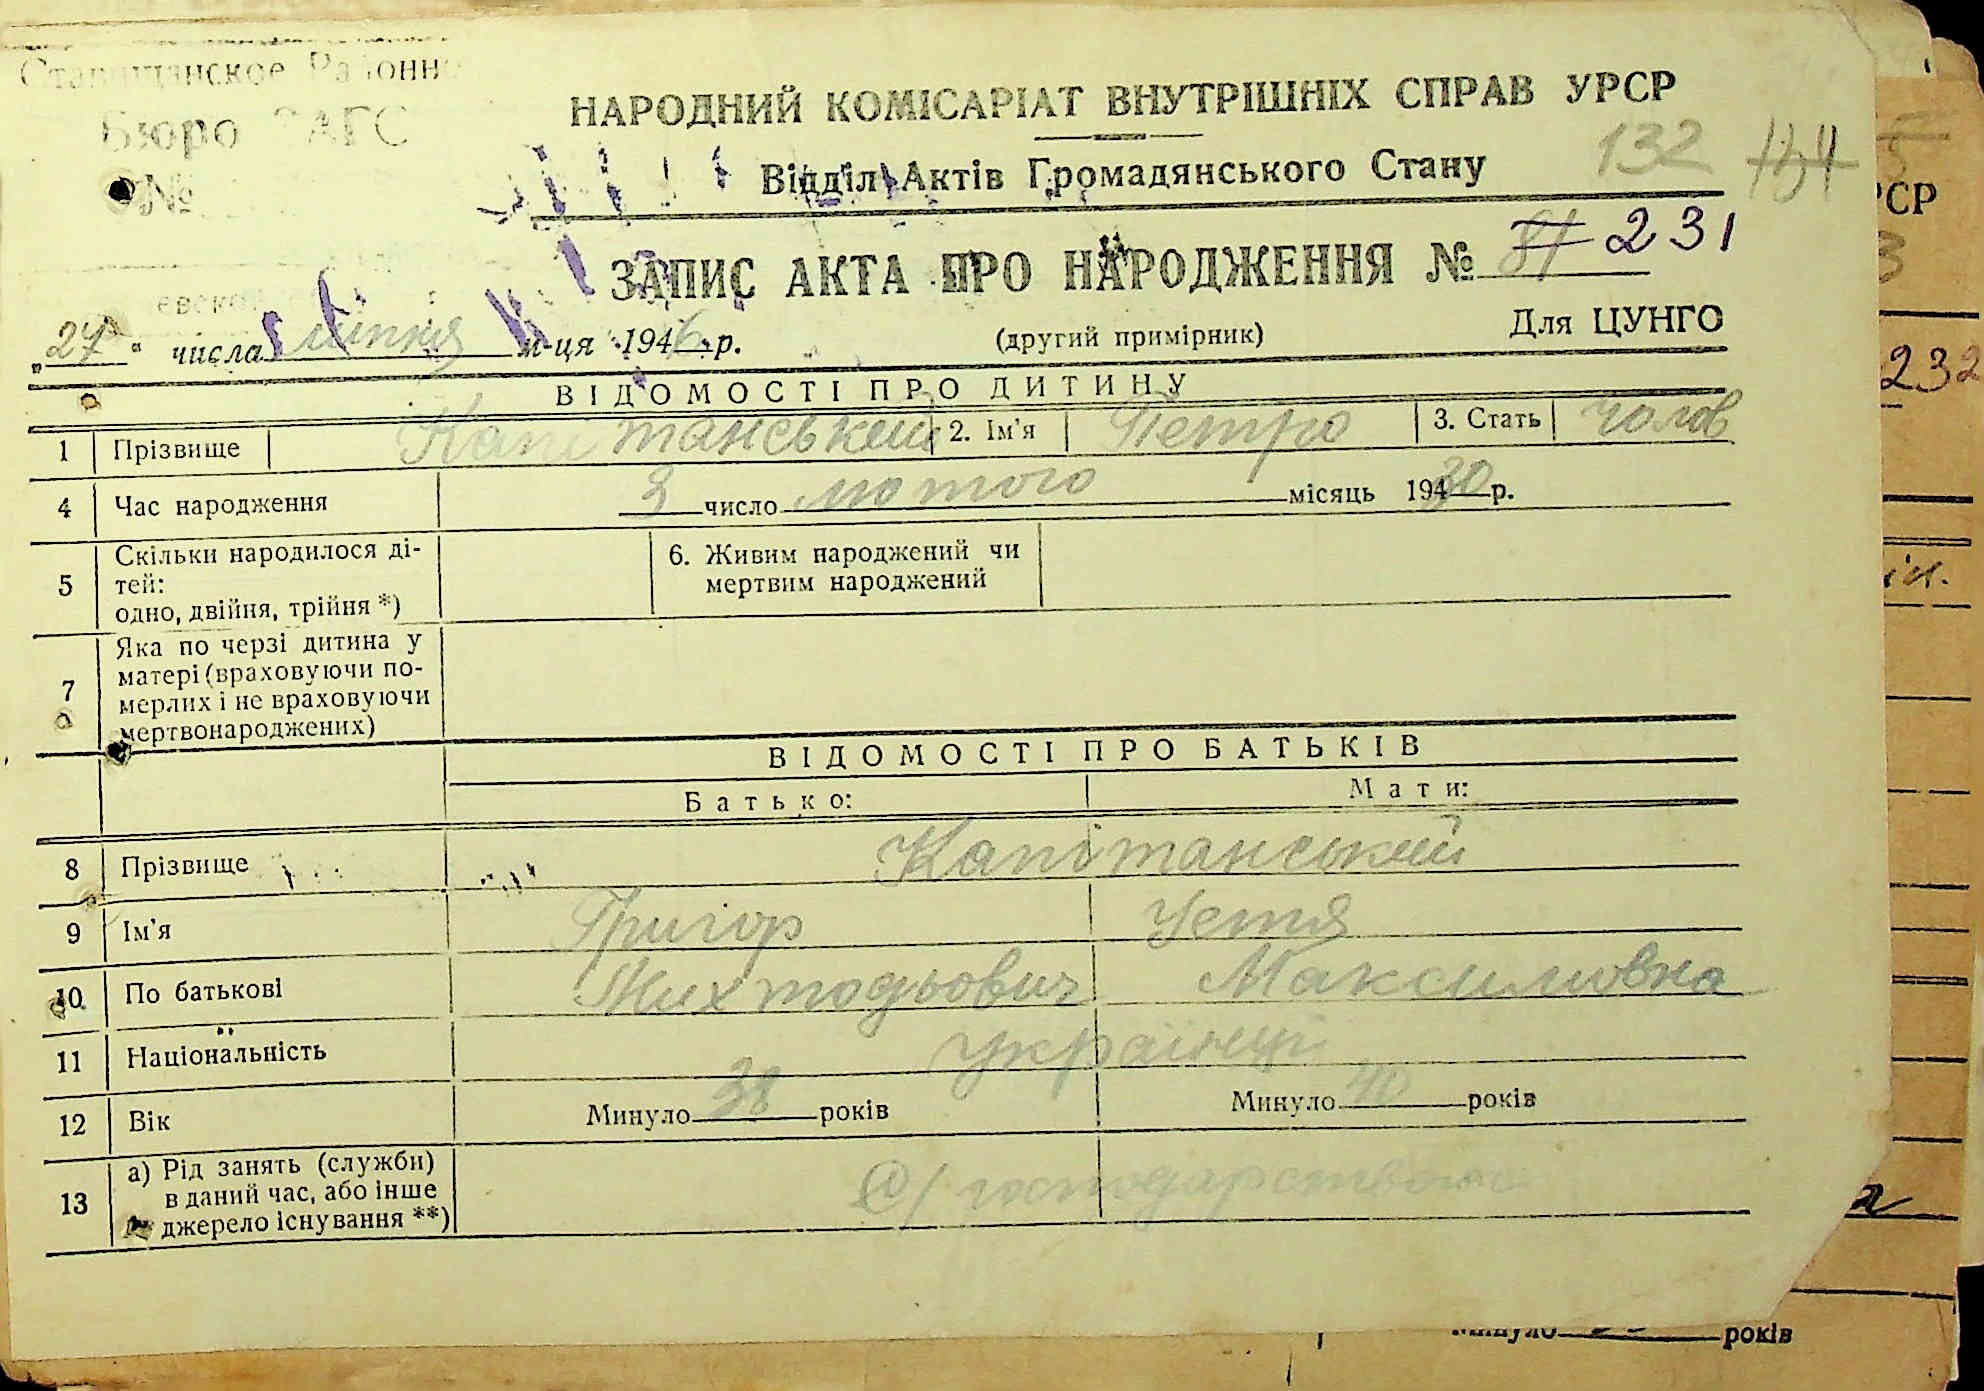 Ставищанское Районн
Бюро ЗАГС
№
НАРОДНИЙ КОМІСАРІАТ ВНУТРІШНІХ СПРАВ УРСР
Відділ Актів Громадянського Стану
132 134
ЗАПИС АКТА ПРО НАРОДЖЕННЯ № 81 231
„27“ числа липня м-ця 1946 р. (другий примірник) Для ЦУНГО
ВІДОМОСТІ ПРО ДИТИНУ
1 Прізвище Капітанський 2. Ім'я Петро 3. Стать чолов
4 Час народження 3 число лютого місяць 19430 р.
5 Скільки народилося ді-
тей:
одно, двійня, трійня *)
6. Живим народжений чи
мертвим народжений
7 Яка по черзі дитина у
матері (враховуючи по-
мерлих і не враховуючи
мертвонароджених)
ВІДОМОСТІ ПРО БАТЬКІВ
Батько: Мати:
8 Прізвище Капітанський
9 Ім'я Григор Устя
10 По батькові Михтодьович Максимовна
11 Національність Українці
12 Вік Минуло 38 років Минуло 40 років
13 а) Рід занять (служби)
в даний час, або інше
джерело існування **)
господарства
РСР
232
Минуло років